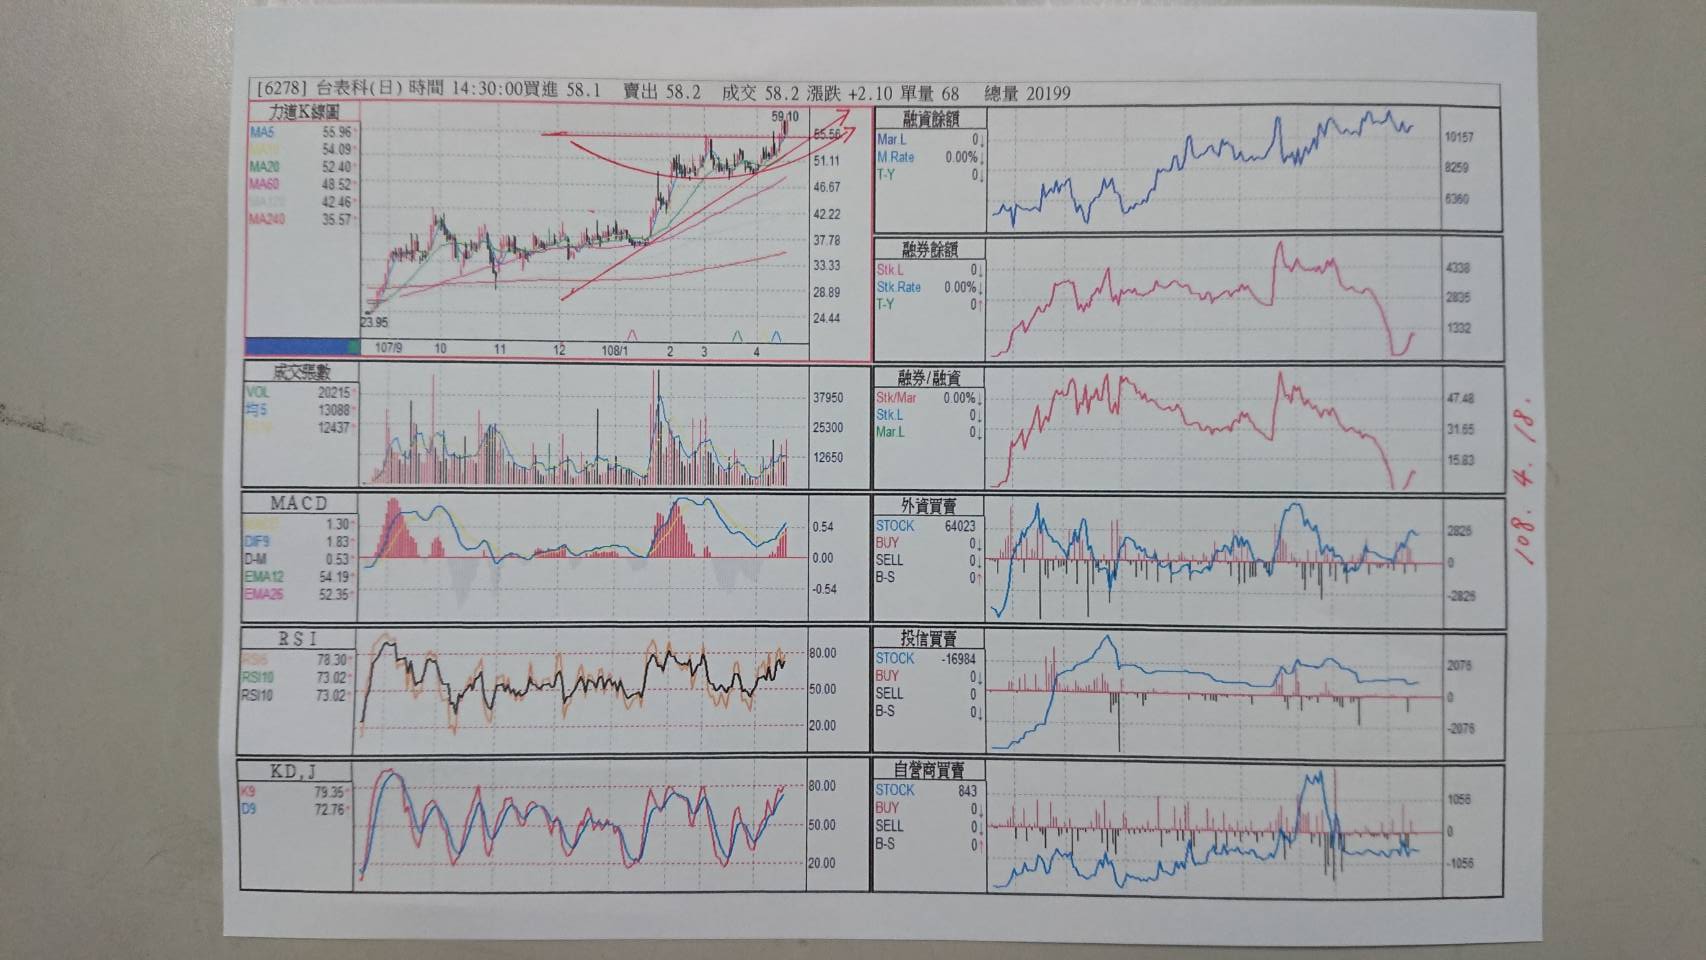 [6278] 台表科(日) 時間 14:30:00買進 58.1 賣出 58.2 成交 58.2 漲跌 +2.10 單量 68 總量 20199
力道K線圖
MA5 55.96
54.09
MA20 52.40
MA60 48.52
42.46
MA240 35.57
59.10
55.56
51.11
46.67
42.22
37.78
33.33
28.89
24.44
23.95
107/9 10 11 12 108/1 2 3 4
成交張數
VOL 20215
均5 13088
12437
37950
25300
12650
MACD
1.30
DIF9 1.83
D-M 0.53
EMA12 54.19
EMA26 52.35
0.54
0.00
-0.54
RSI
RSI5 78.30
RSI10 73.02
RSI10 73.02
80.00
50.00
20.00
KD,J
K9 79.35
D9 72.76
80.00
50.00
20.00
融資餘額
Mar.L 0↓
M Rate 0.00%↓
T-Y 0↓
10157
8259
6360
融券餘額
Stk.L 0↓
Stk.Rate 0.00%↓
T-Y 0↑
4338
2835
1332
融券/融資
Stk/Mar 0.00%↓
Stk.L 0↓
Mar.L 0↓
47.48
31.65
15.83
外資買賣
STOCK 64023
BUY 0↓
SELL 0↓
B-S 0↑
2826
0
-2826
投信買賣
STOCK -16984
BUY 0↓
SELL 0↓
B-S 0↓
2076
0
-2076
自營商買賣
STOCK 843
BUY 0↓
SELL 0↓
B-S 0↑
1056
0
-1056
108. 4. 18.